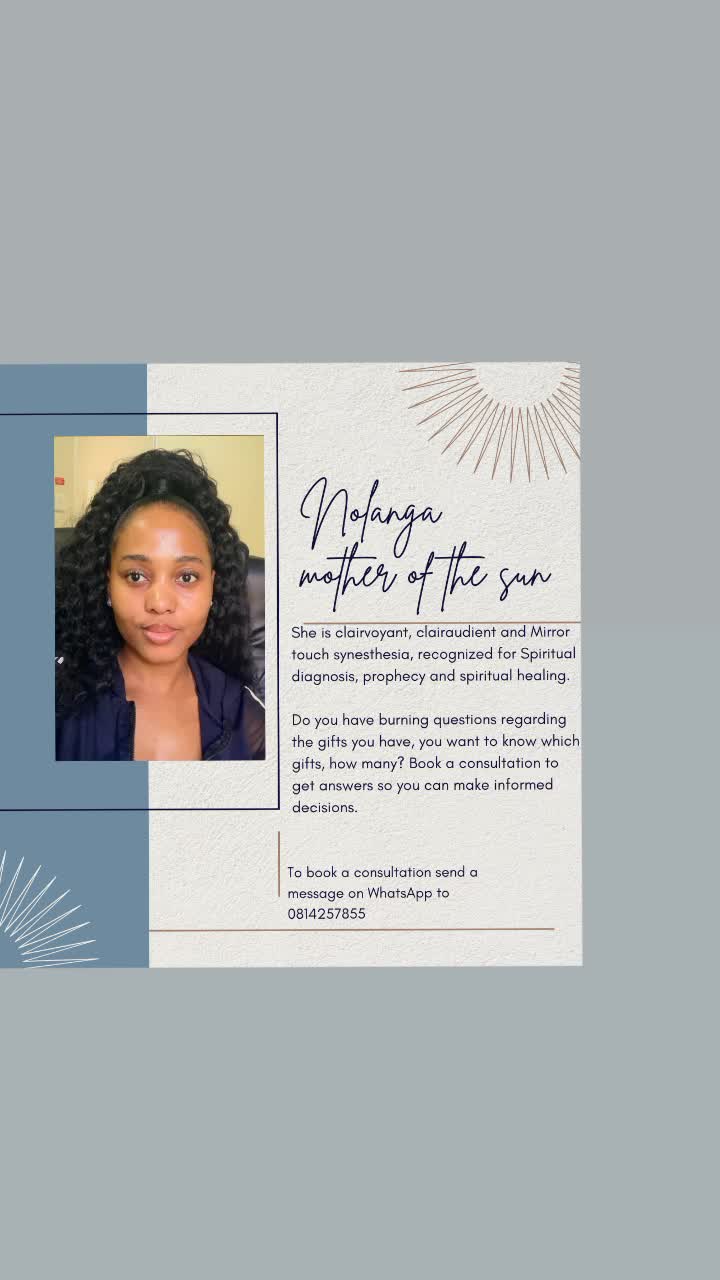 Nolanga
mother of the sun
She is clairvoyant, clairaudient and Mirror
touch synesthesia, recognized for Spiritual
diagnosis, prophecy and spiritual healing.
Do you have burning questions regarding
the gifts you have, you want to know which
gifts, how many? Book a consultation to
get answers so you can make informed
decisions.
To book a consultation send a
message on WhatsApp to
0814257855